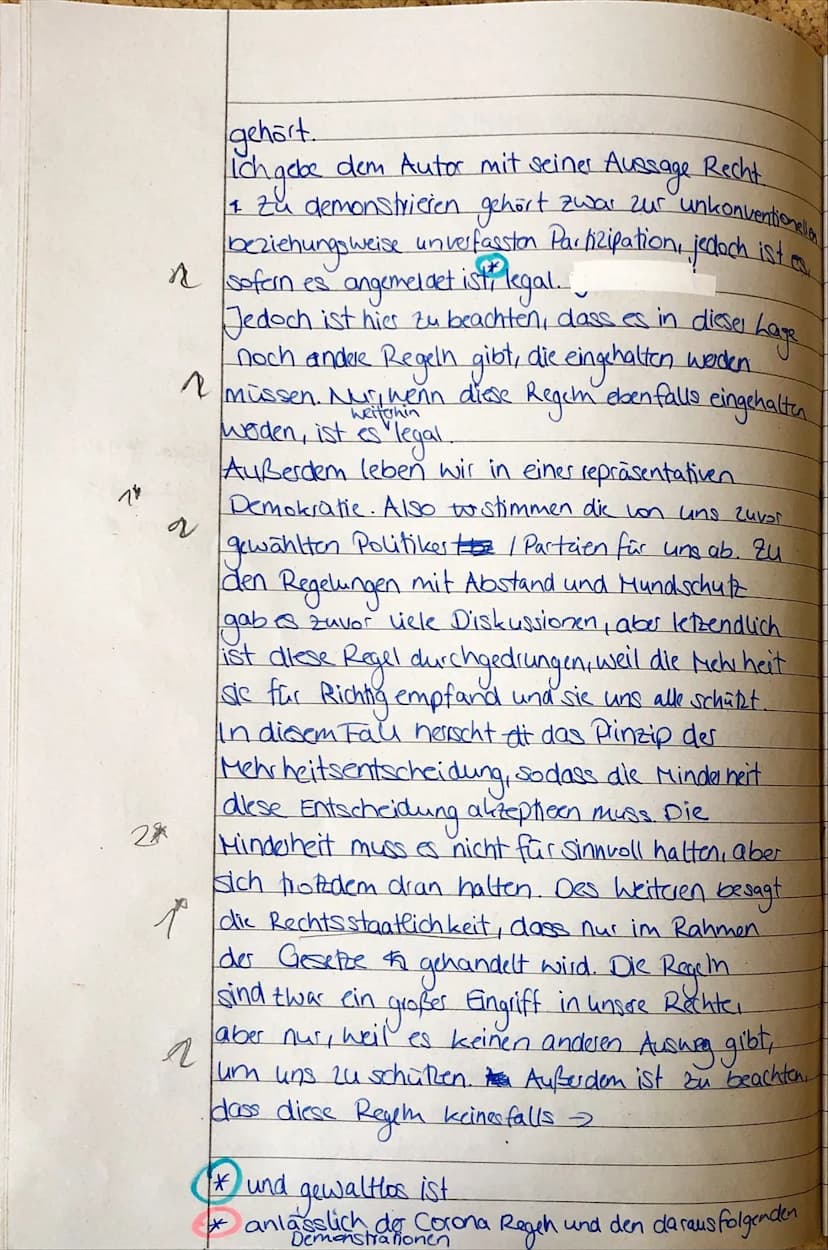 gehört.
Ich gebe dem Autor mit seiner Aussage Recht.
Zu demonstrieren gehört zwar zur unkonventionellen
beziehungsweise unverfassten Partizipation, jedoch ist es,
sofern es angemeldet ist*, legal.
Jedoch ist hier zu beachten, dass es in dieser Lage
noch andere Regeln gibt, die eingehalten werden
müssen. Nur, wenn diese Regeln ebenfalls eingehalten
weiterhin
werden, ist es legal.
Außerdem leben wir in einer repräsentativen
Demokratie. Also stimmen die von uns zuvor
gewählten Politiker / Parteien für uns ab. Zu
den Regelungen mit Abstand und Mundschutz
gab es zuvor viele Diskussionen, aber letzendlich
ist diese Regel durchgedrungen, weil die Mehrheit
sie für Richtig empfand und sie uns alle schützt.
In diesem Fall herrscht das Prinzip der
Mehrheitsentscheidung, sodass die Minderheit
diese Entscheidung akzeptieren muss. Die
Minderheit muss es nicht für sinnvoll halten, aber
sich trotzdem dran halten. Des Weiteren besagt
die Rechtsstaatlichkeit, dass nur im Rahmen
der Gesetze gehandelt wird. Die Regeln
sind zwar ein großer Eingriff in unsere Rechte,
aber nur, weil es keinen anderen Ausweg gibt,
um uns zu schützen. Außerdem ist zu beachten,
dass diese Regeln keinesfalls →
* und gewaltlos ist
* anlässlich der Corona Regeln und den darausfolgenden
Demonstrationen